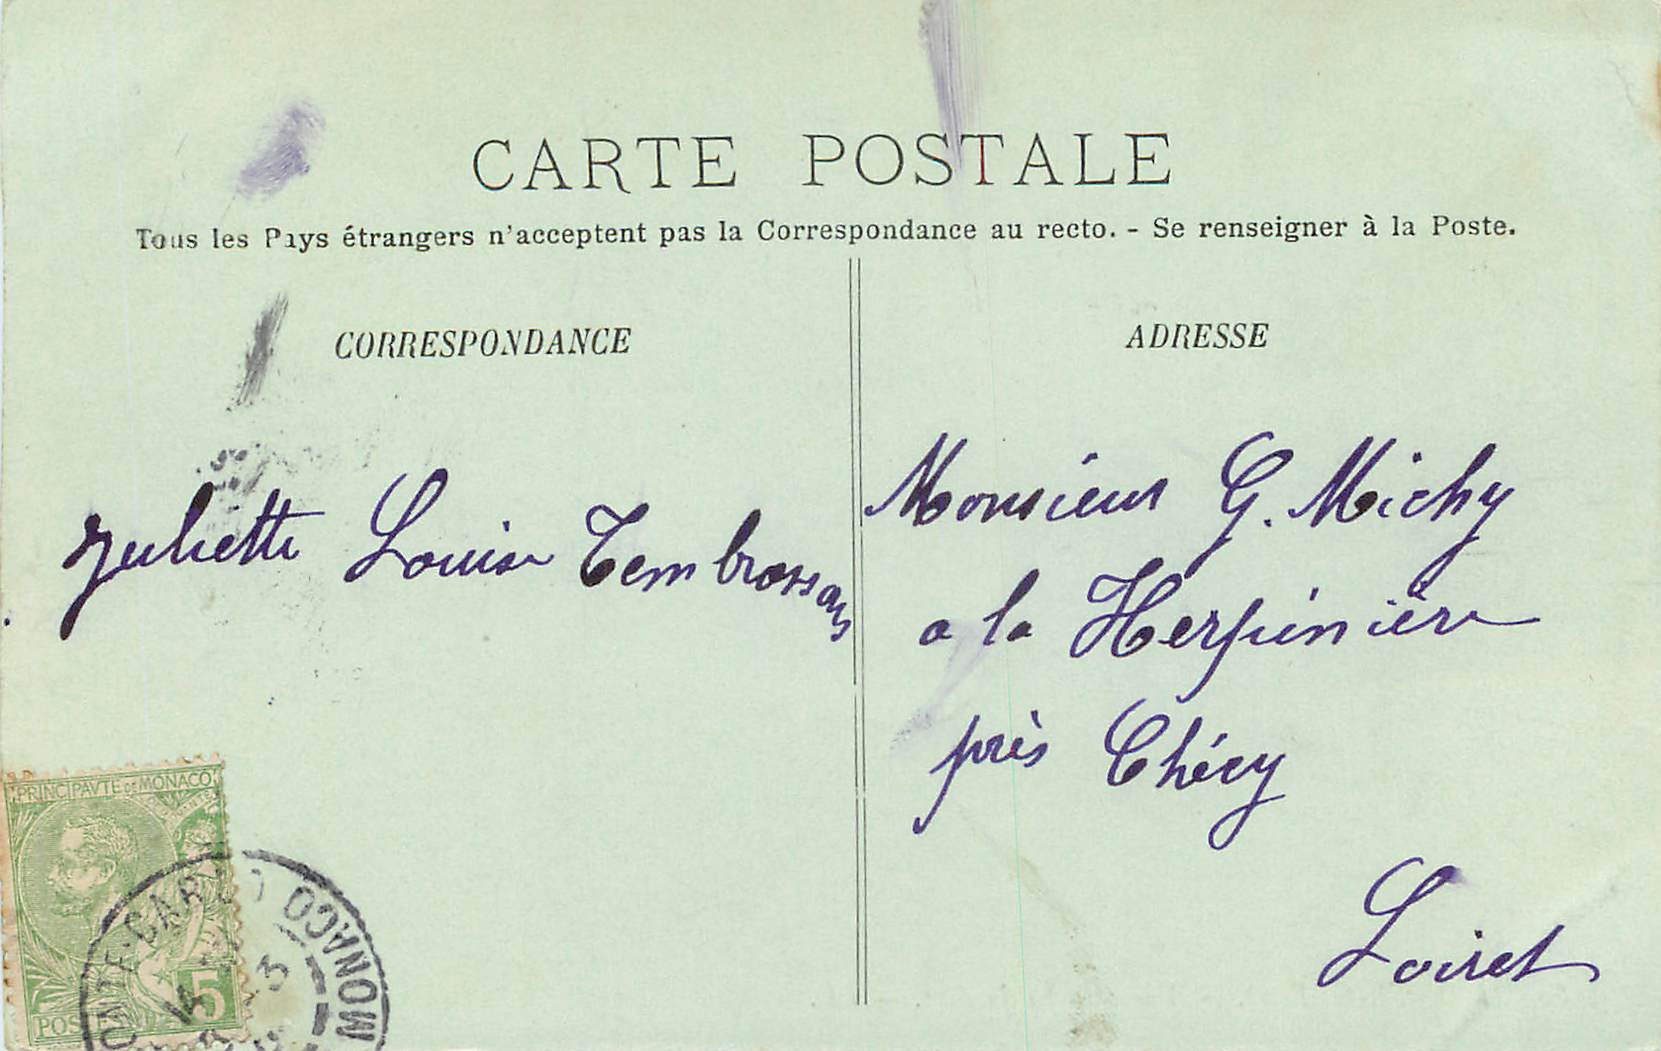 CARTE POSTALE
Tous les Pays étrangers n'acceptent pas la Correspondance au recto. - Se renseigner à la Poste.
CORRESPONDANCE
Juliette Louise
ADRESSE
Monsieur G. Michy
a la Herpinière
près Chécy
Loiret
PRINCIPAVTE DE MONACO
5
POSTES
MONTE-CARLO MONACO